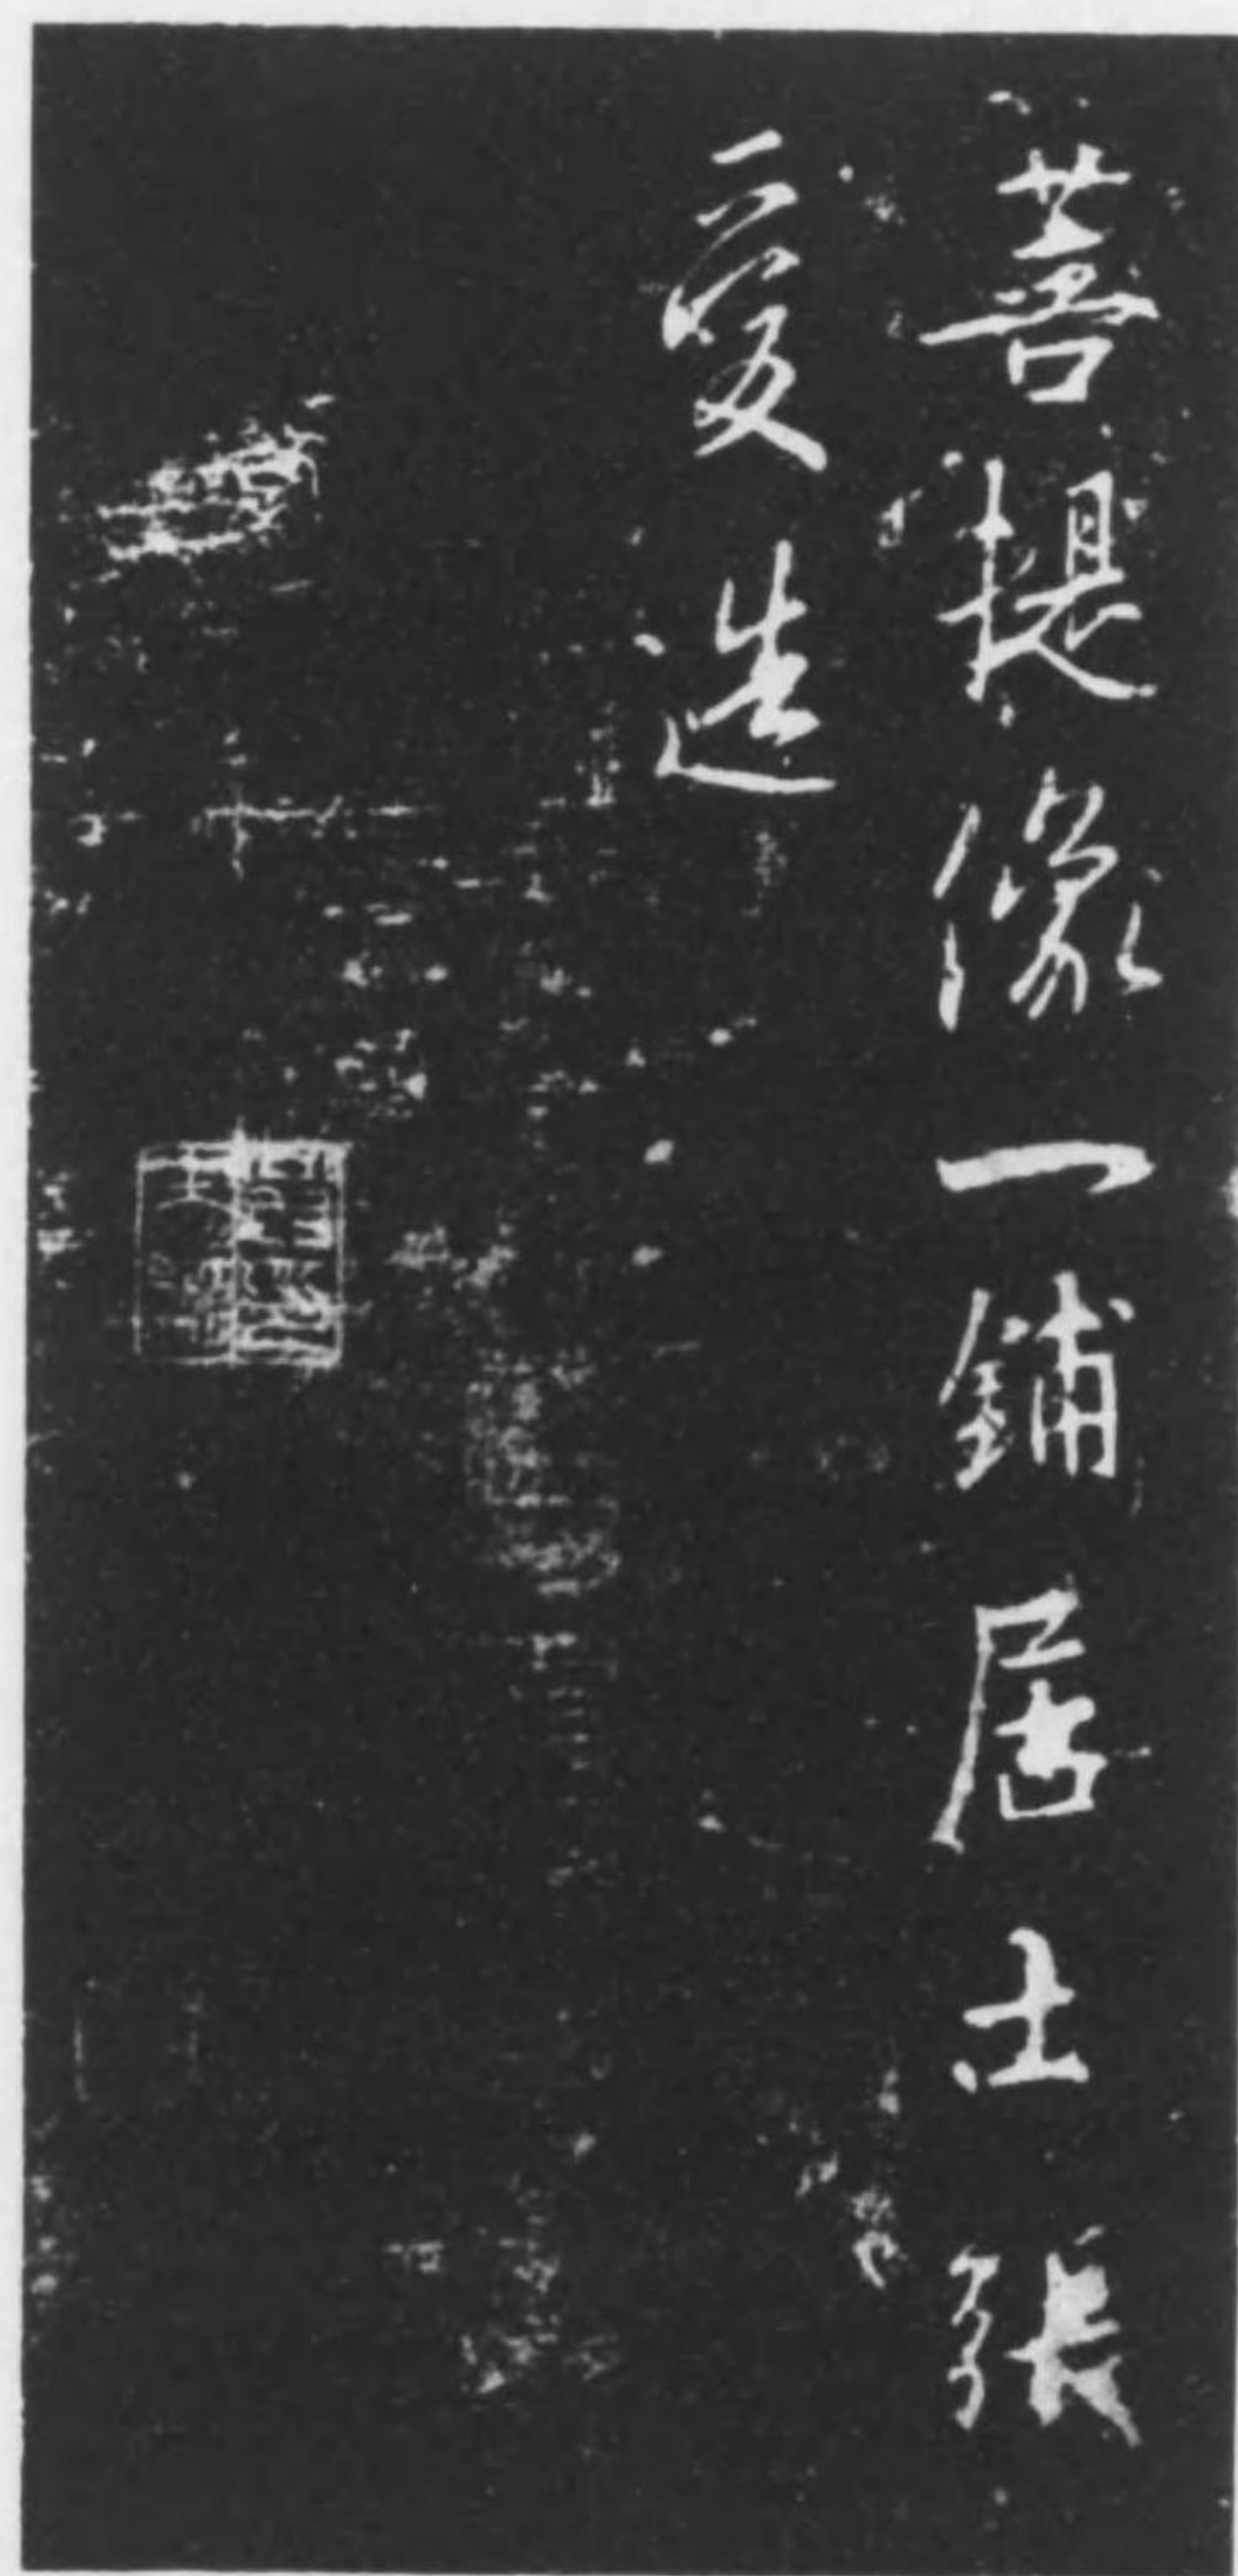 菩提像一鋪居士張
愛造